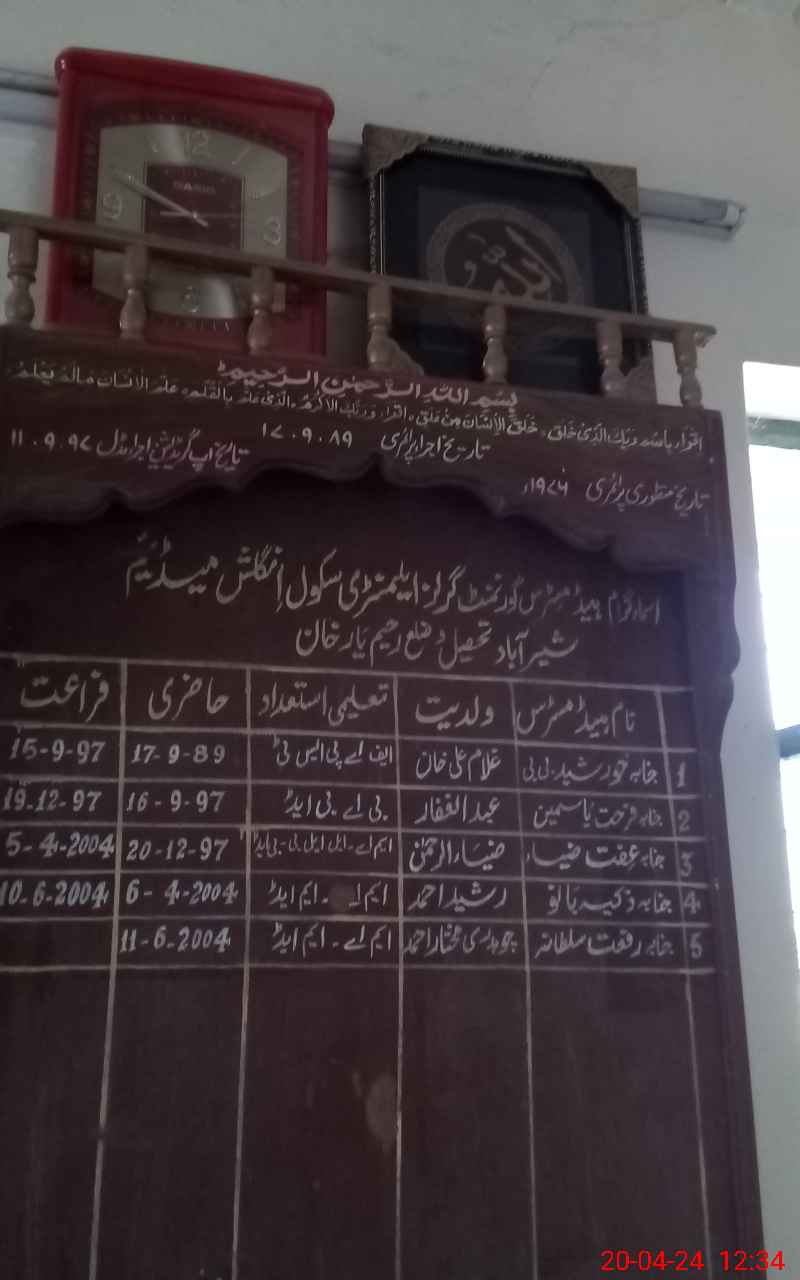 12
9
3
6
CASIO
الله
بسم اللہ الرحمٰن الرحیم
اقراء باسم ربک الذی خلق ۔ خلق الانسان من علق ۔ اقراء وربک الاکرم ۔ الذی علم بالقلم ۔ علم الانسان مالم یعلم
تاریخ منظوری پرائمری ۱۹۷۶ء
تاریخ اجراء پرائمری ۱۷.۹.۸۹
تاریخ اپ گریڈیشن اجراء مڈل ۱۱.۹.۹۷
اسماء گرام ہیڈ مسٹرس گورنمنٹ گرلز ایلیمنٹری سکول انگلش میڈیم
شیر آباد تحصیل و ضلع رحیم یار خان
نام ہیڈ مسٹرس ولدیت تعلیمی استعداد حاضری فراغت
1 جنابہ خورشید بی بی غلام علی خان ایف اے پی ایس ٹی 17-9-89 15-9-97
2 جنابہ فرحت یاسمین عبدالغفار بی اے بی ایڈ 16-9-97 19-12-97
3 جنابہ عفت ضیاء ضیاء الرحمٰن ایم اے-ایل ایل بی-بی ایڈ 20-12-97 5-4-2004
4 جنابہ ذکیہ بانو رشید احمد ایم اے - ایم ایڈ 6-4-2004 10-6-2004
5 جنابہ رفعت سلطانہ چوہدری مختار احمد ایم اے - ایم ایڈ 11-6-2004
20-04-24 12:34